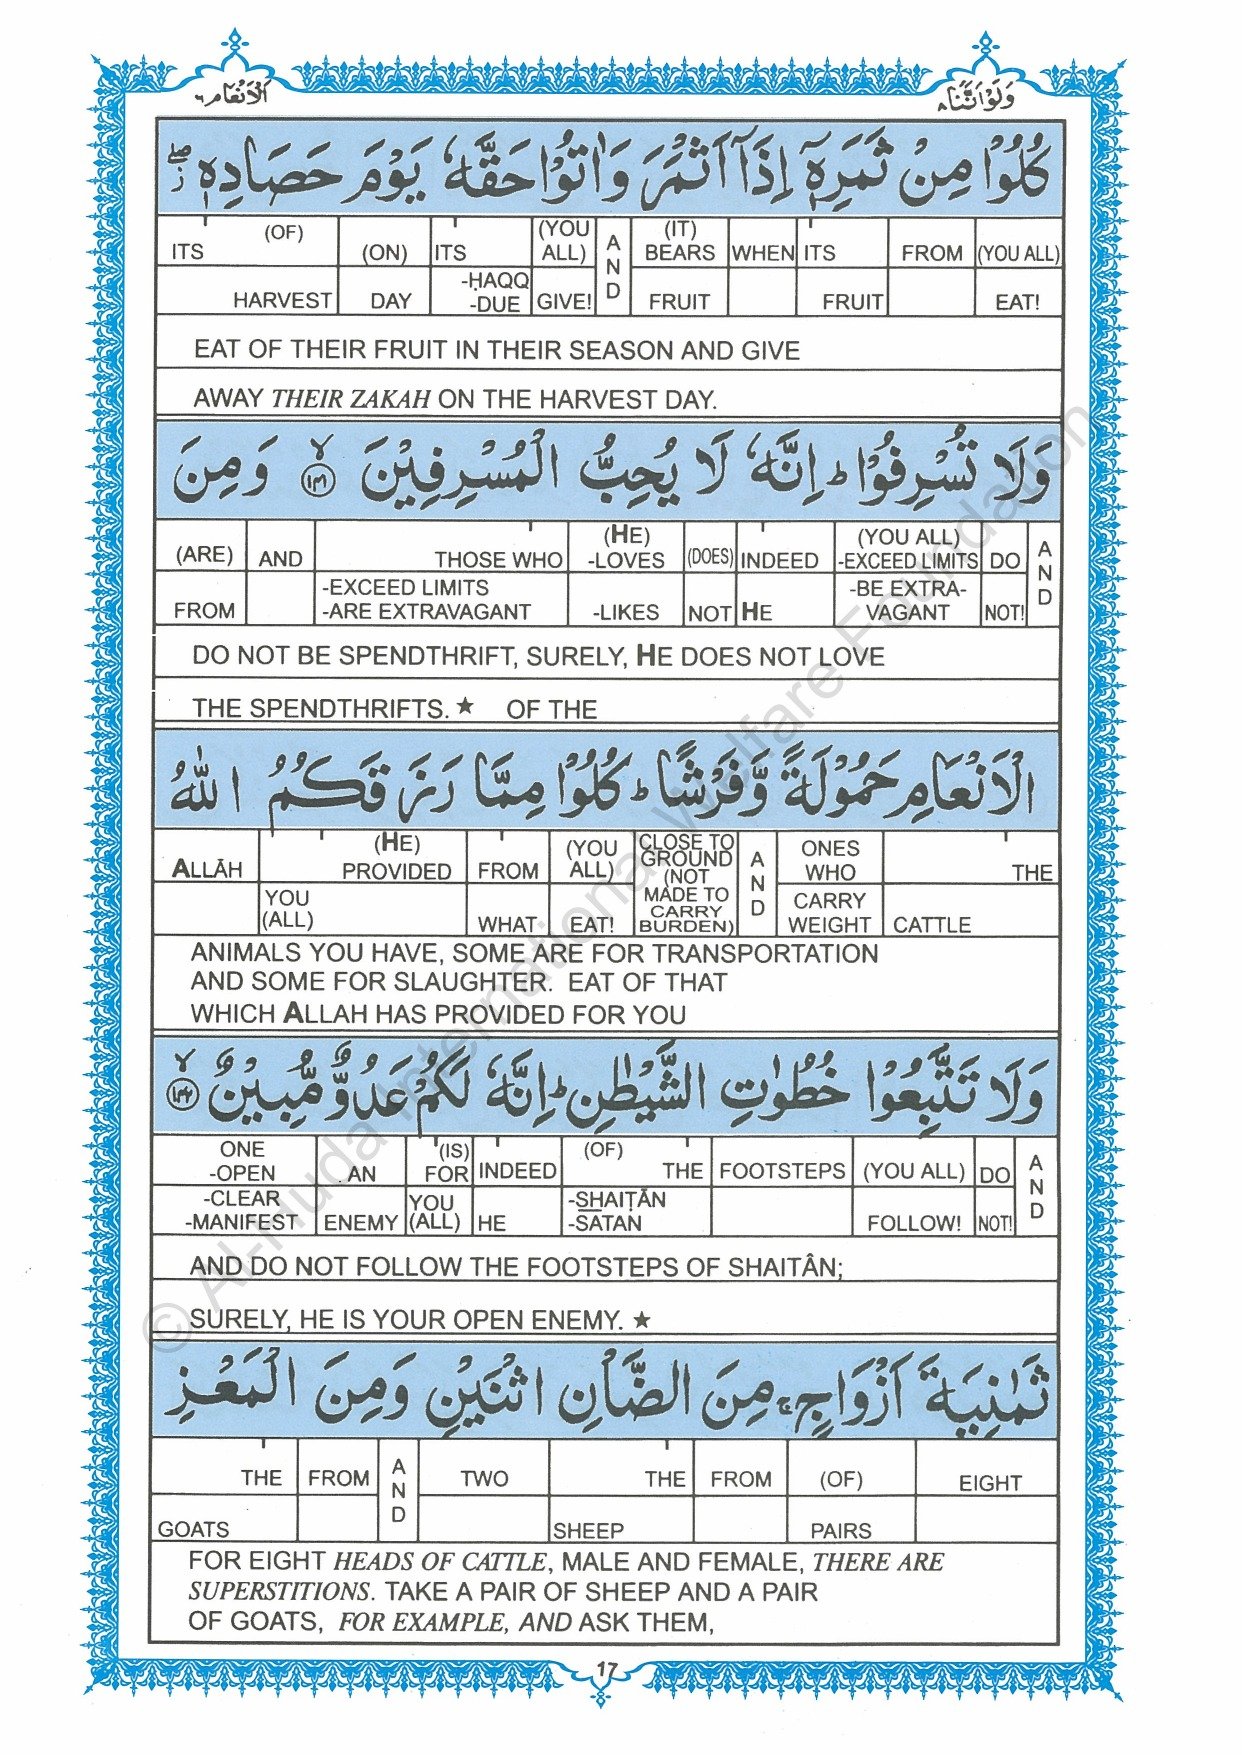 الانعام ٦
ولواننا ٨
كُلُوْا مِنْ ثَمَرِهٖٓ اِذَآ اَثْمَرَ وَاٰتُوْا حَقَّهٗ يَوْمَ حَصَادِهٖ ۖ ز
ITS (OF) (ON) ITS (YOU ALL) AND (IT) BEARS WHEN ITS FROM (YOU ALL)
HARVEST DAY -ḤAQQ -DUE GIVE! FRUIT FRUIT EAT!
EAT OF THEIR FRUIT IN THEIR SEASON AND GIVE
AWAY THEIR ZAKAH ON THE HARVEST DAY.
وَلَا تُسْرِفُوْا ؕ اِنَّهٗ لَا يُحِبُّ الْمُسْرِفِيْنَ ۙ ١٤١ وَمِنَ
(ARE) AND THOSE WHO (HE) -LOVES (DOES) INDEED (YOU ALL) -EXCEED LIMITS DO AND
FROM -EXCEED LIMITS -ARE EXTRAVAGANT -LIKES NOT HE -BE EXTRA-VAGANT NOT!
DO NOT BE SPENDTHRIFT, SURELY, HE DOES NOT LOVE
THE SPENDTHRIFTS. ★ OF THE
الْاَنْعَامِ حَمُوْلَةً وَّفَرْشًا ؕ كُلُوْا مِمَّا رَزَقَكُمُ اللّٰهُ
ALLĀH (HE) PROVIDED FROM (YOU ALL) CLOSE TO GROUND (NOT MADE TO CARRY BURDEN) AND ONES WHO THE
YOU (ALL) WHAT EAT! CARRY WEIGHT CATTLE
ANIMALS YOU HAVE, SOME ARE FOR TRANSPORTATION
AND SOME FOR SLAUGHTER. EAT OF THAT
WHICH ALLAH HAS PROVIDED FOR YOU
وَلَا تَتَّبِعُوْا خُطُوٰتِ الشَّيْطٰنِ ؕ اِنَّهٗ لَكُمْ عَدُوٌّ مُّبِيْنٌ ۙ ١٤٢
ONE -OPEN AN (IS) FOR INDEED (OF) THE FOOTSTEPS (YOU ALL) DO AND
-CLEAR -MANIFEST ENEMY YOU (ALL) HE -SHAIṬĀN -SATAN FOLLOW! NOT!
AND DO NOT FOLLOW THE FOOTSTEPS OF SHAITÂN;
SURELY, HE IS YOUR OPEN ENEMY. ★
ثَمٰنِيَةَ اَزْوَاجٍ ۚ مِنَ الضَّاْنِ اثْنَيْنِ وَمِنَ الْمَعْزِ
THE FROM AND TWO THE FROM (OF) EIGHT
GOATS SHEEP PAIRS
FOR EIGHT HEADS OF CATTLE, MALE AND FEMALE, THERE ARE
SUPERSTITIONS. TAKE A PAIR OF SHEEP AND A PAIR
OF GOATS, FOR EXAMPLE, AND ASK THEM,
17
© Al-Huda International Welfare Foundation